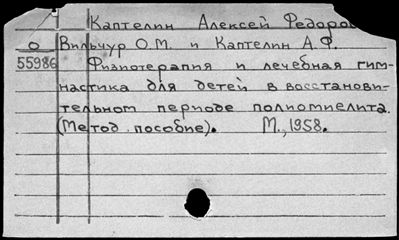 Каптелин Алексей Федоров
О Вильчур О.М. и Каптелин А.Ф.
55986 Физиотерапия и лечебная гим-
настика для детей в восстанови-
тельном периоде полиомиелита.
(Метод. пособие). М., 1958.